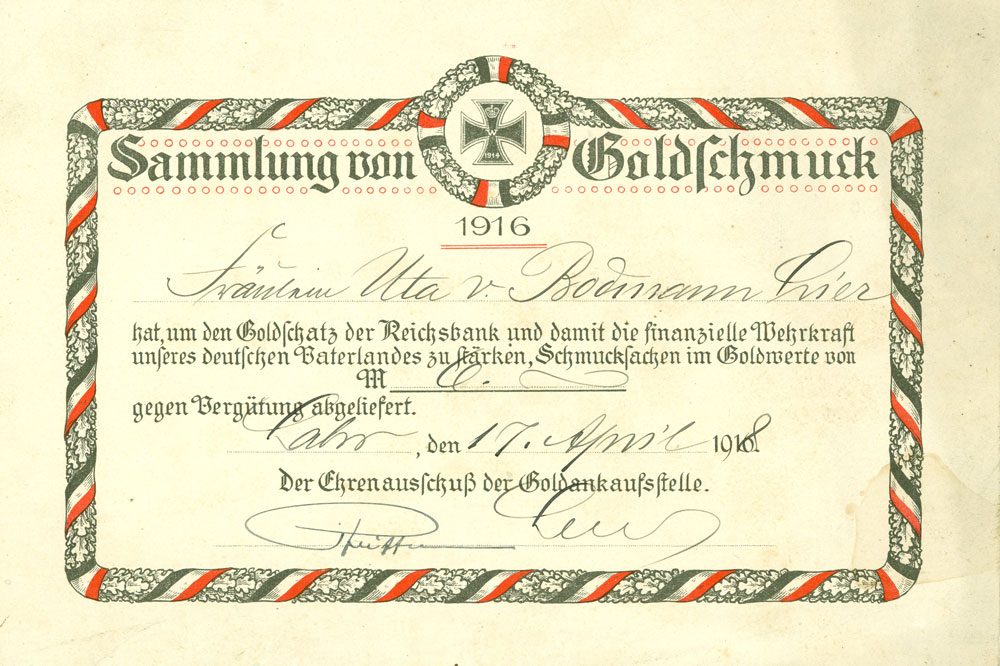 W
1914
Sammlung von Goldschmuck
1916
Fräulein Uta v. Bodmann hier
hat, um den Goldschatz der Reichsbank und damit die finanzielle Wehrkraft
unseres deutschen Vaterlandes zu stärken, Schmucksachen im Goldwerte von
M 6.
gegen Vergütung abgeliefert.
Lahr, den 17. April 1918
Der Ehrenausschuß der Goldankaufsstelle.